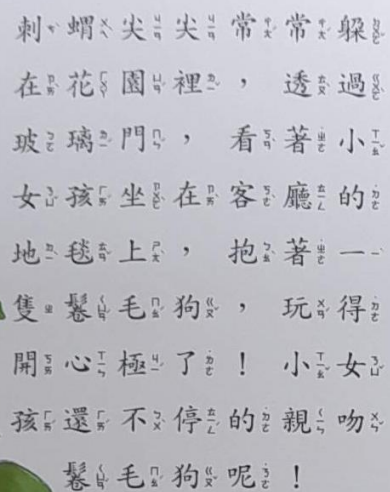 刺蝟尖尖常常躲
在花園裡，透過
玻璃門，看著小
女孩坐在客廳的
地毯上，抱著一
隻鬈毛狗，玩得
開心極了！小女
孩還不停的親吻
鬈毛狗呢！